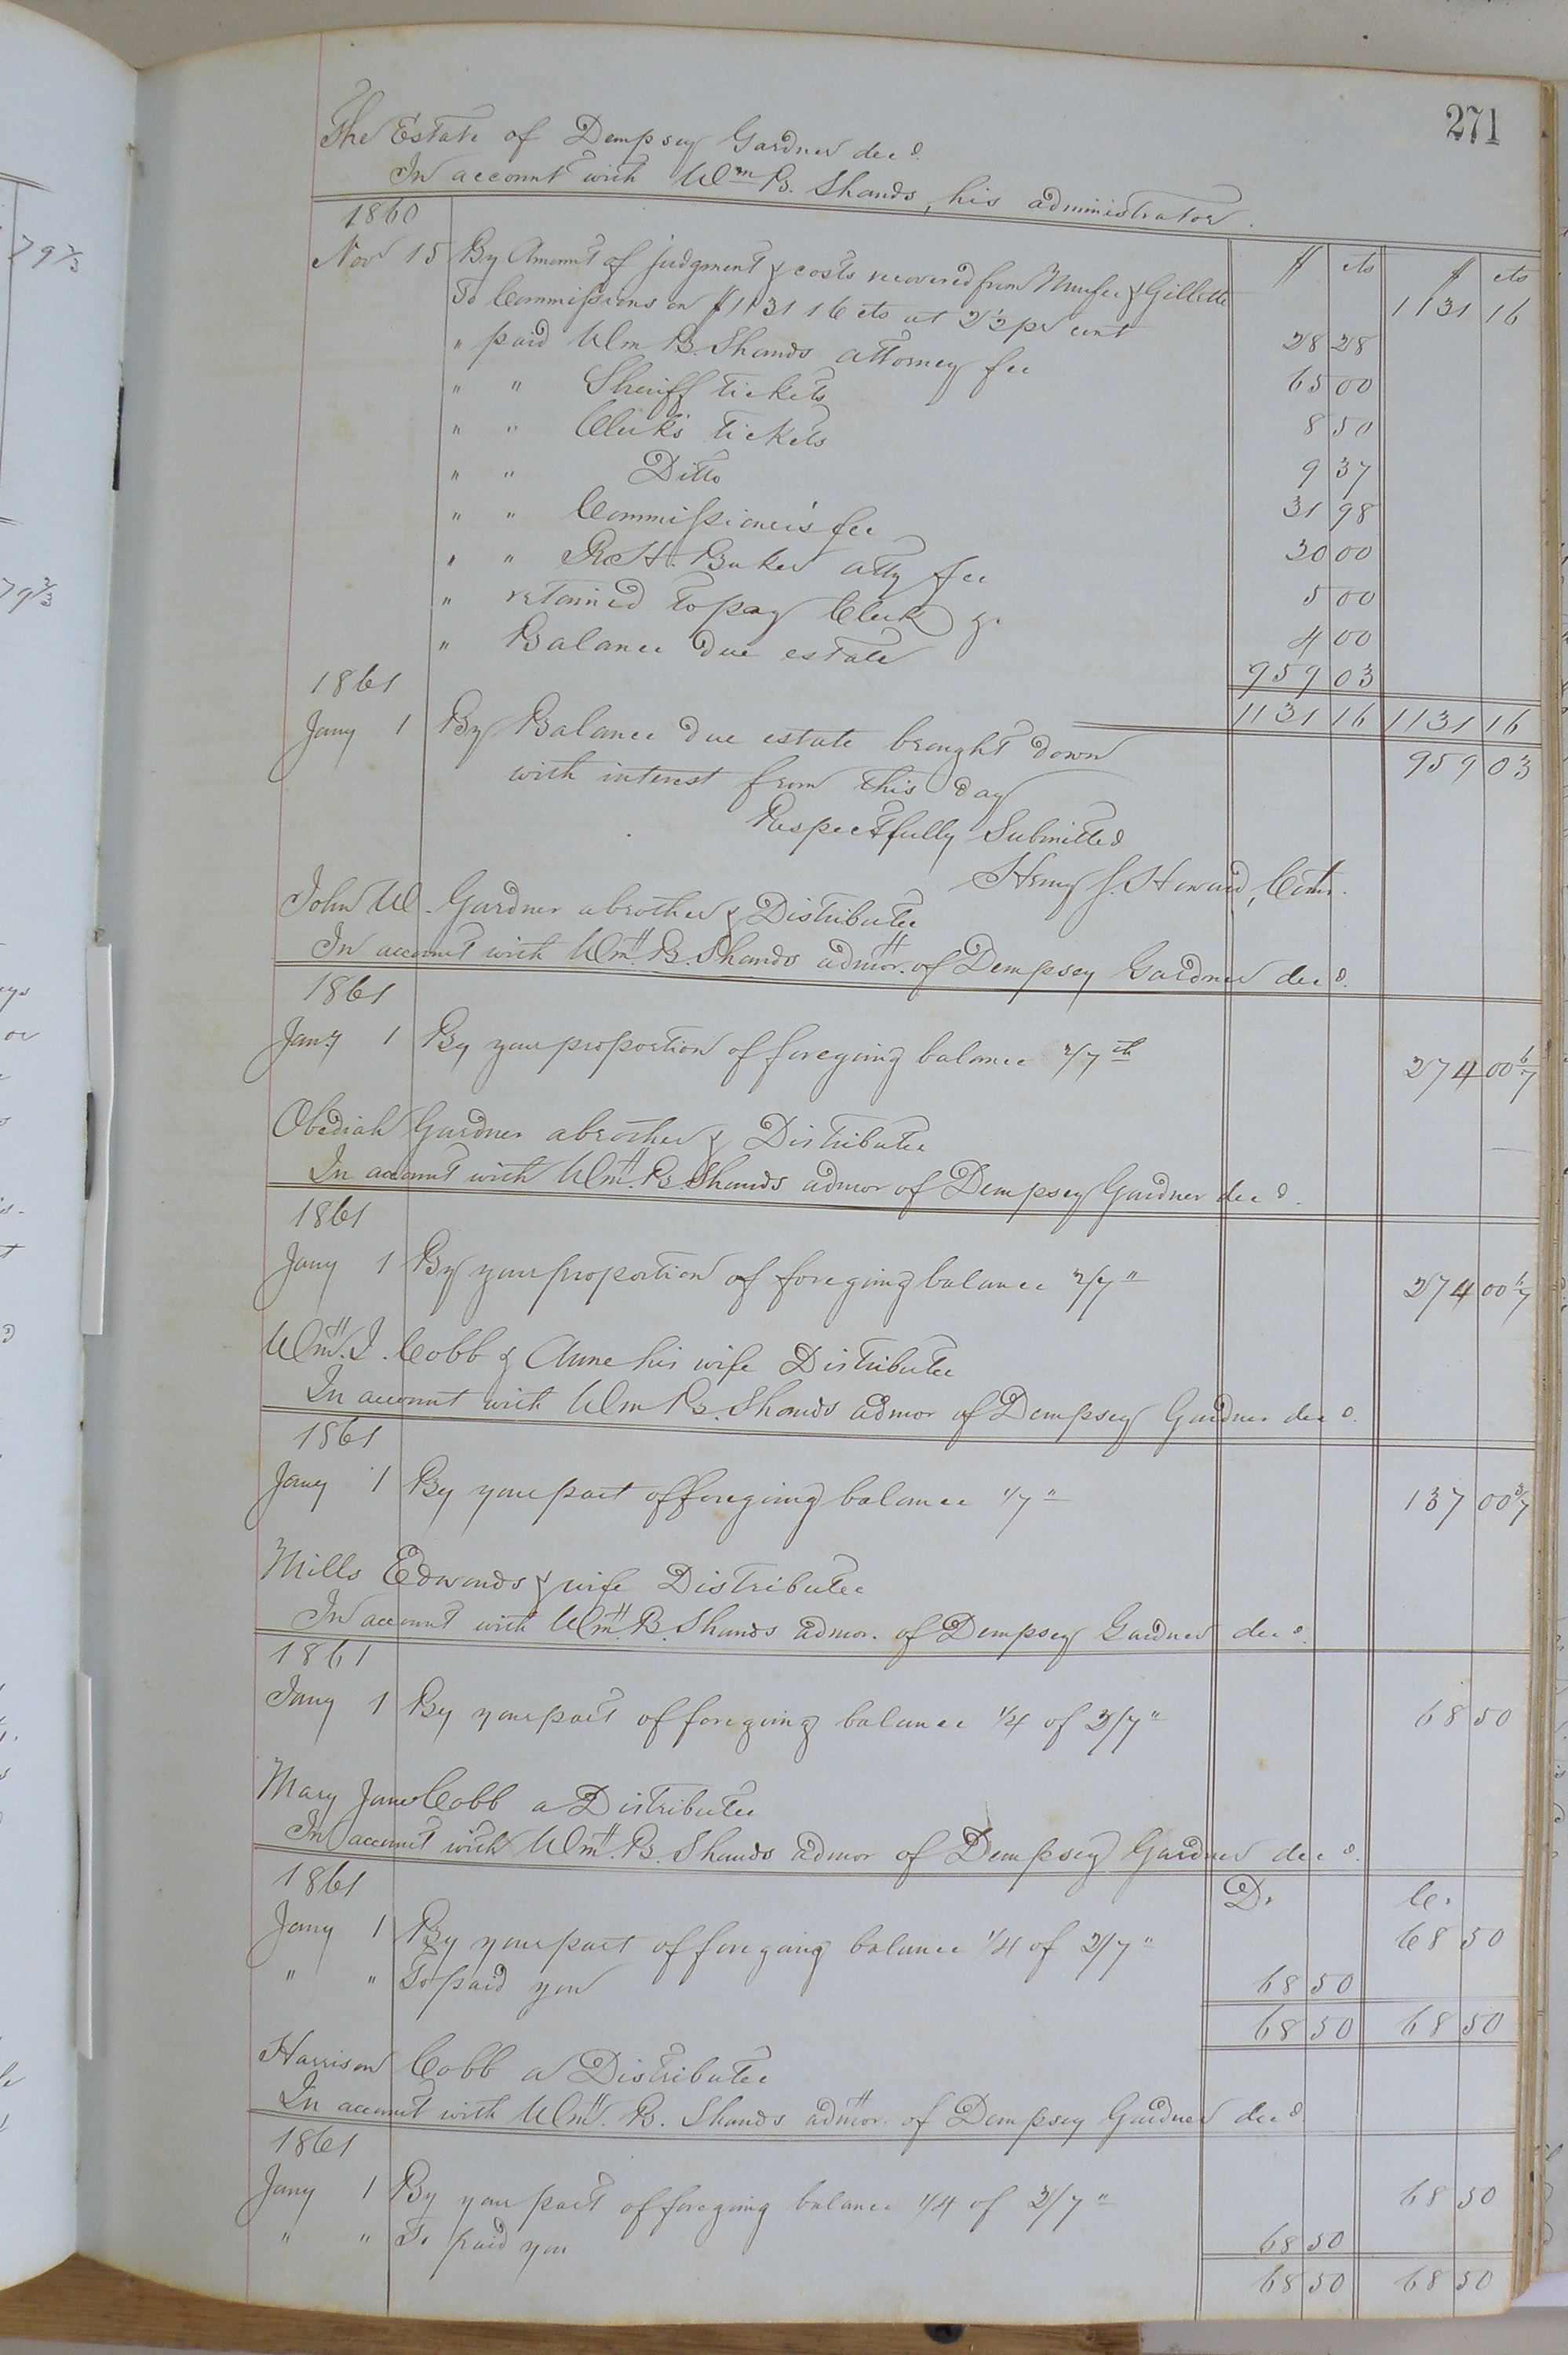 271
The Estate of Dempsey Gardner decd.
In account with Wm B. Shands, his administrator.
1860 $ cts $ cts
Nov 15 By Amount of judgment & costs recovered from Murfee & Gillette 1131 16
To Commissions on $1131 16 cts at 2½ pr cent 28 28
" paid Wm B. Shands attorney fee 65 00
" " Sheriff tickets 8 50
" " Clerk's tickets 9 37
" " Ditto 31 98
" " Commissioner's fee 20 00
" " R. H. Baker atty fee 5 00
" retained to pay Clerk &c 4 00
" Balance due estate 959 03
1131 16 1131 16
1861
Jany 1 By Balance due estate brought down 959 03
with interest from this day
Respectfully Submitted
Henry J. Howard, Comr.
John W. Gardner a brother & Distributee
In account with Wm. B. Shands admor. of Dempsey Gardner decd.
1861
Jany 1 By your proportion of foregoing balance 2/7th 274 00 6/7
Obediah Gardner a brother & Distributee
In account with Wm. B. Shands admor of Dempsey Gardner decd.
1861
Jany 1 By your proportion of foregoing balance 2/7" 274 00 6/7
Wm. J. Cobb & Anne his wife Distributee
In account with Wm B. Shands admor of Dempsey Gardner decd.
1861
Jany 1 By your part of foregoing balance 1/7" 137 00 3/7
Mills Edwards & wife Distributee
In account with Wm. B. Shands admor. of Dempsey Gardner decd.
1861
Jany 1 By your part of foregoing balance 1/4 of 2/7" 68 50
Mary Jane Cobb a Distributee
In account with Wm. B. Shands admor of Dempsey Gardner decd.
1861 Dr Cr
Jany 1 By your part of foregoing balance 1/4 of 2/7" 68 50
" " To paid you 68 50
68 50 68 50
Harrison Cobb a Distributee
In account with Wm. B. Shands admor. of Dempsey Gardner decd
1861
Jany 1 By your part of foregoing balance 1/4 of 2/7" 68 50
" " To paid you 68 50
68 50 68 50